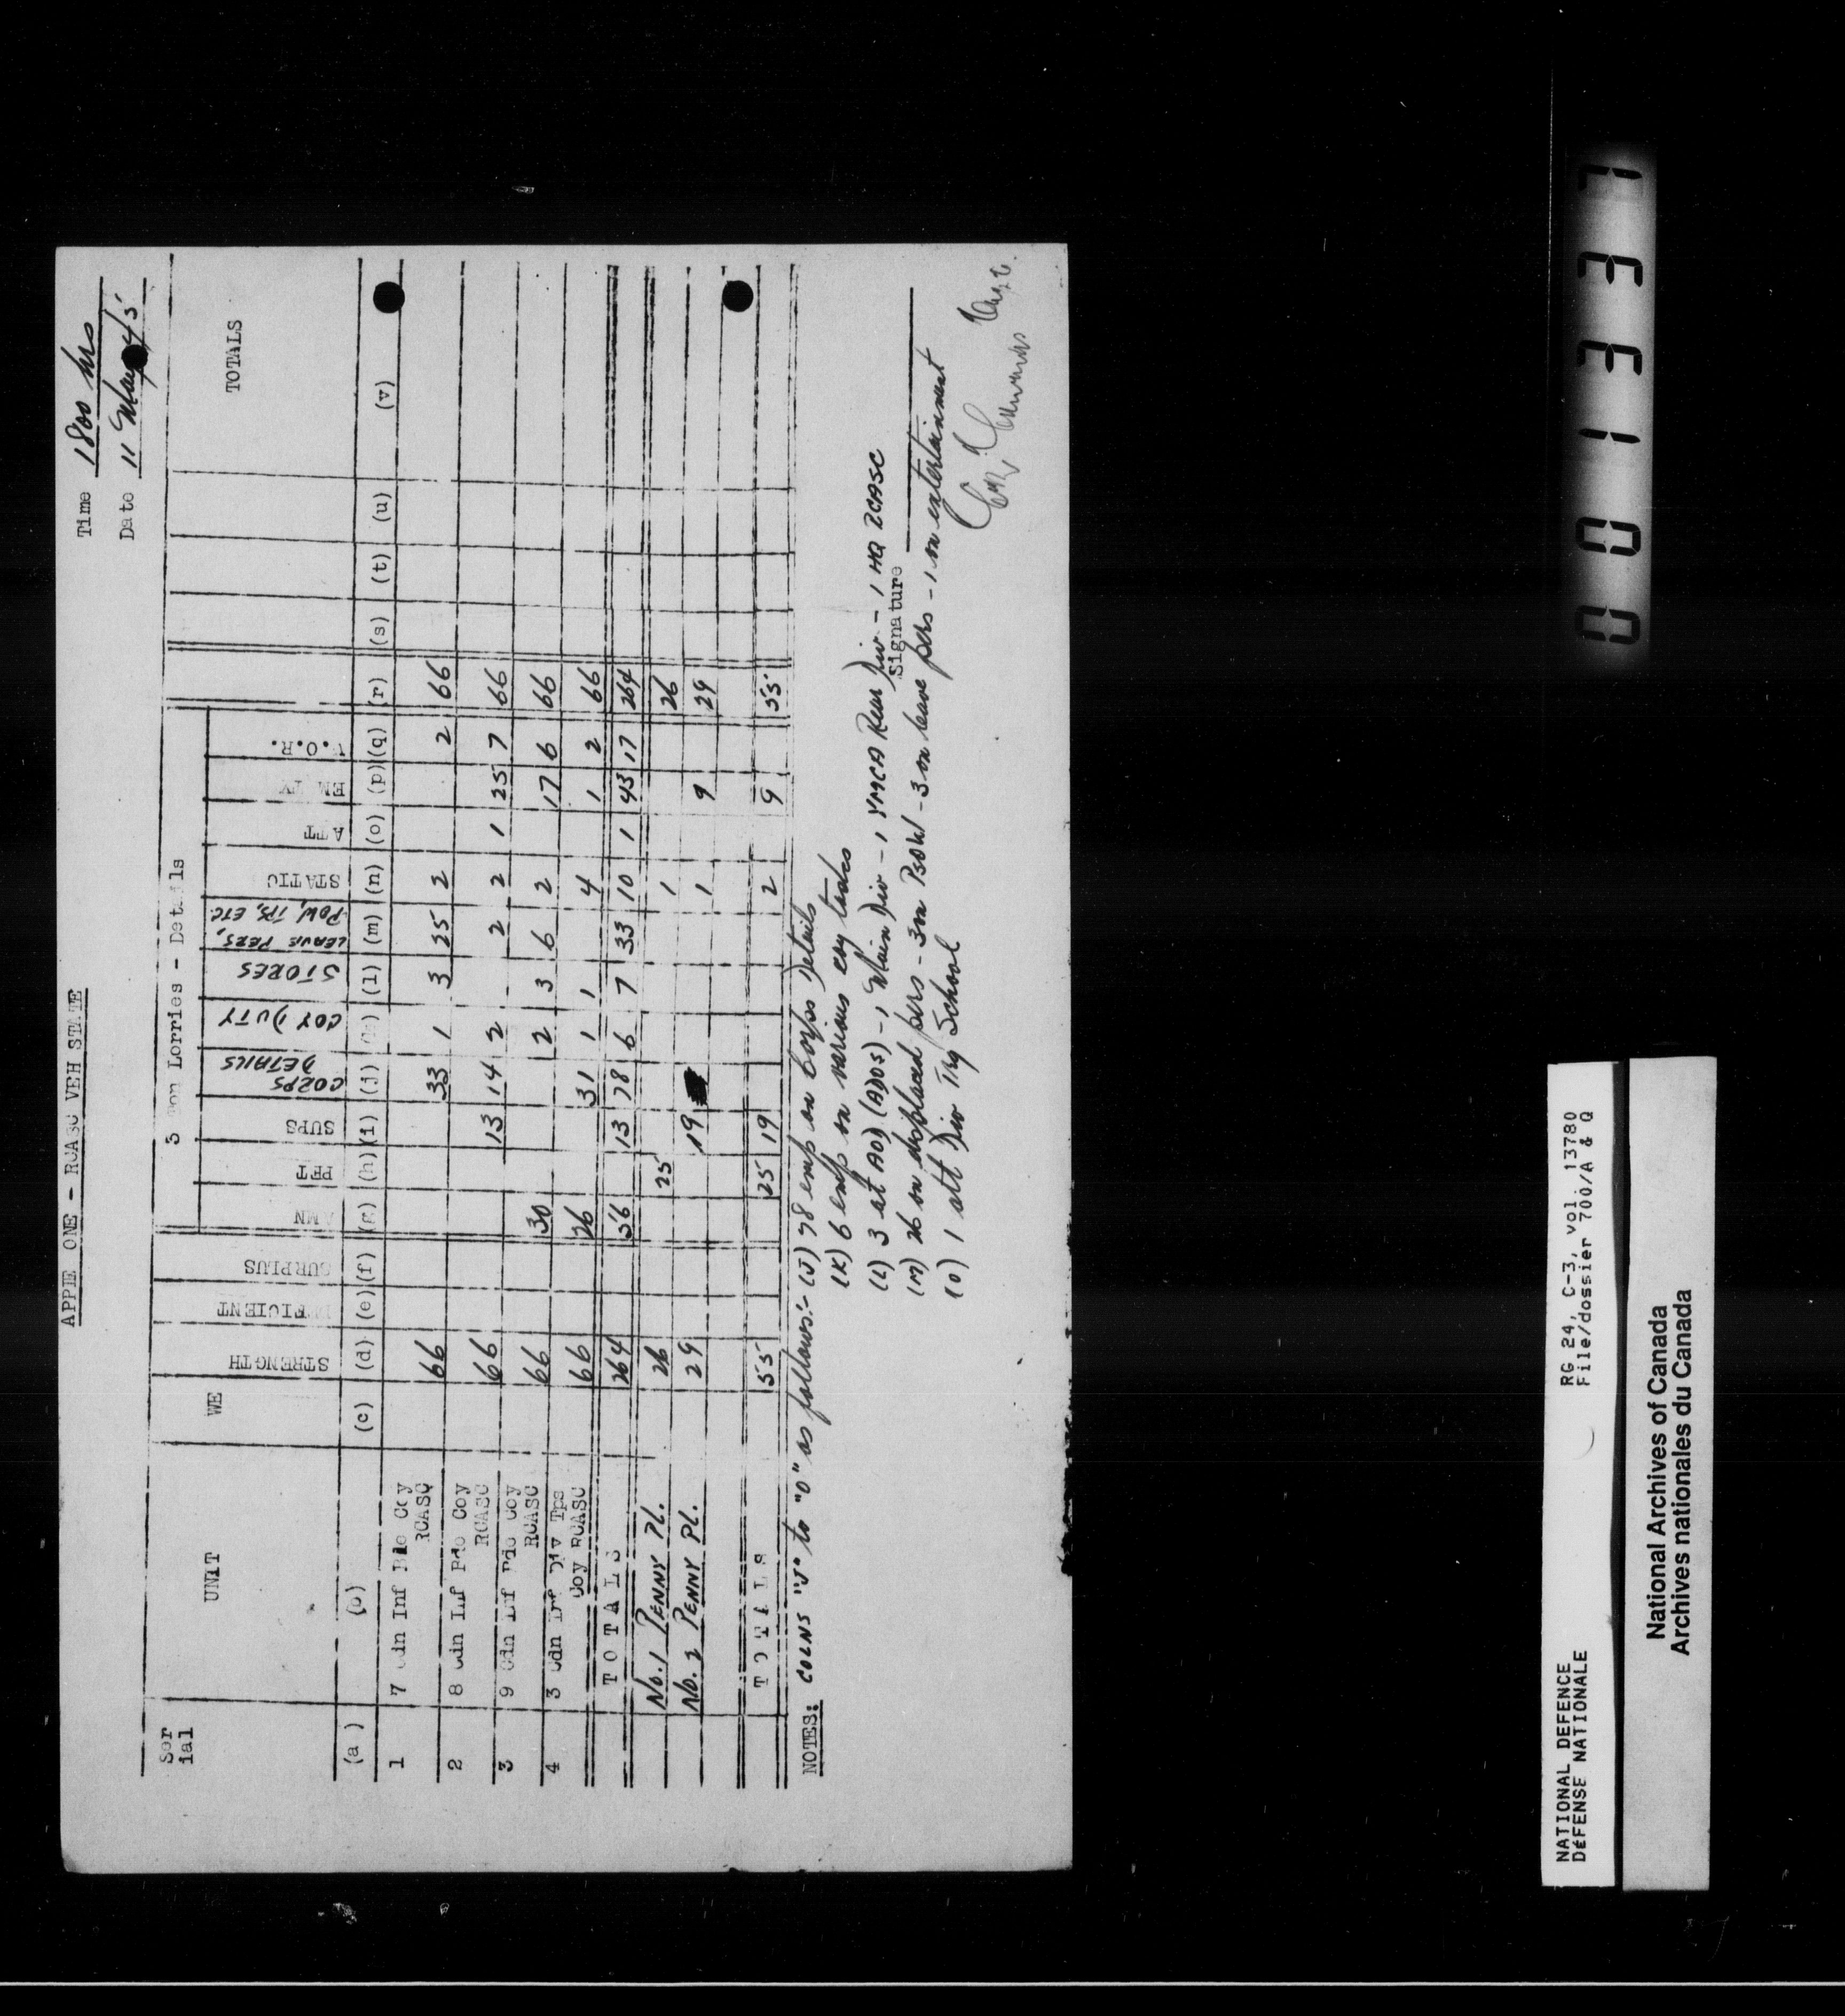 APPIE ONE - RCASC VEH STATE
Time 1800 hrs
Date 11 May 45
Ser ial UNIT WE STRENGTH DEFICIENT SURPLUS 3 Ton Lorries - Details TOTALS
AMN PET SUPS CORPS DETAILS COY DUTY STORES LEAVE PERS, POW, TPS, ETC STATIC ATT EMPTY V.O.R.
(a) (b) (c) (d) (e) (f) (g) (h) (i) (j) (k) (l) (m) (n) (o) (p) (q) (r) (s) (t) (u) (v)
1 7 Cdn Inf Bde Coy RCASC 66 33 1 3 25 2 2 66
2 8 Cdn Inf Bde Coy RCASC 66 13 14 2 2 2 1 25 7 66
3 9 Cdn Inf Bde Coy RCASC 66 30 2 3 6 2 17 6 66
4 3 Cdn Inf Div Tps Coy RCASC 66 26 31 1 1 4 1 2 66
TOTALS 264 56 13 78 6 7 33 10 1 43 17 264
No. 1 PENNY PL. 26 25 1 26
No. 2 PENNY PL. 29 19 1 9 29
TOTALS 55 25 19 2 9 55
NOTES: COLNS "J" to "O" as follows:- (J) 78 emp on Corps Details
(K) 6 emp on various coy tasks
(L) 3 at AOD (ADOS) - 1 Main Div - 1 YMCA Rear Div - 1 HQ RCASC
Signature
(M) 26 on displaced pers - 3 on PsOW - 3 on leave pers - 1 on entertainment
(O) 1 att Div Trg School
NATIONAL DEFENCE RG 24, C-3, vol. 13780
DÉFENSE NATIONALE File/dossier 700/A & Q
National Archives of Canada
Archives nationales du Canada
001337